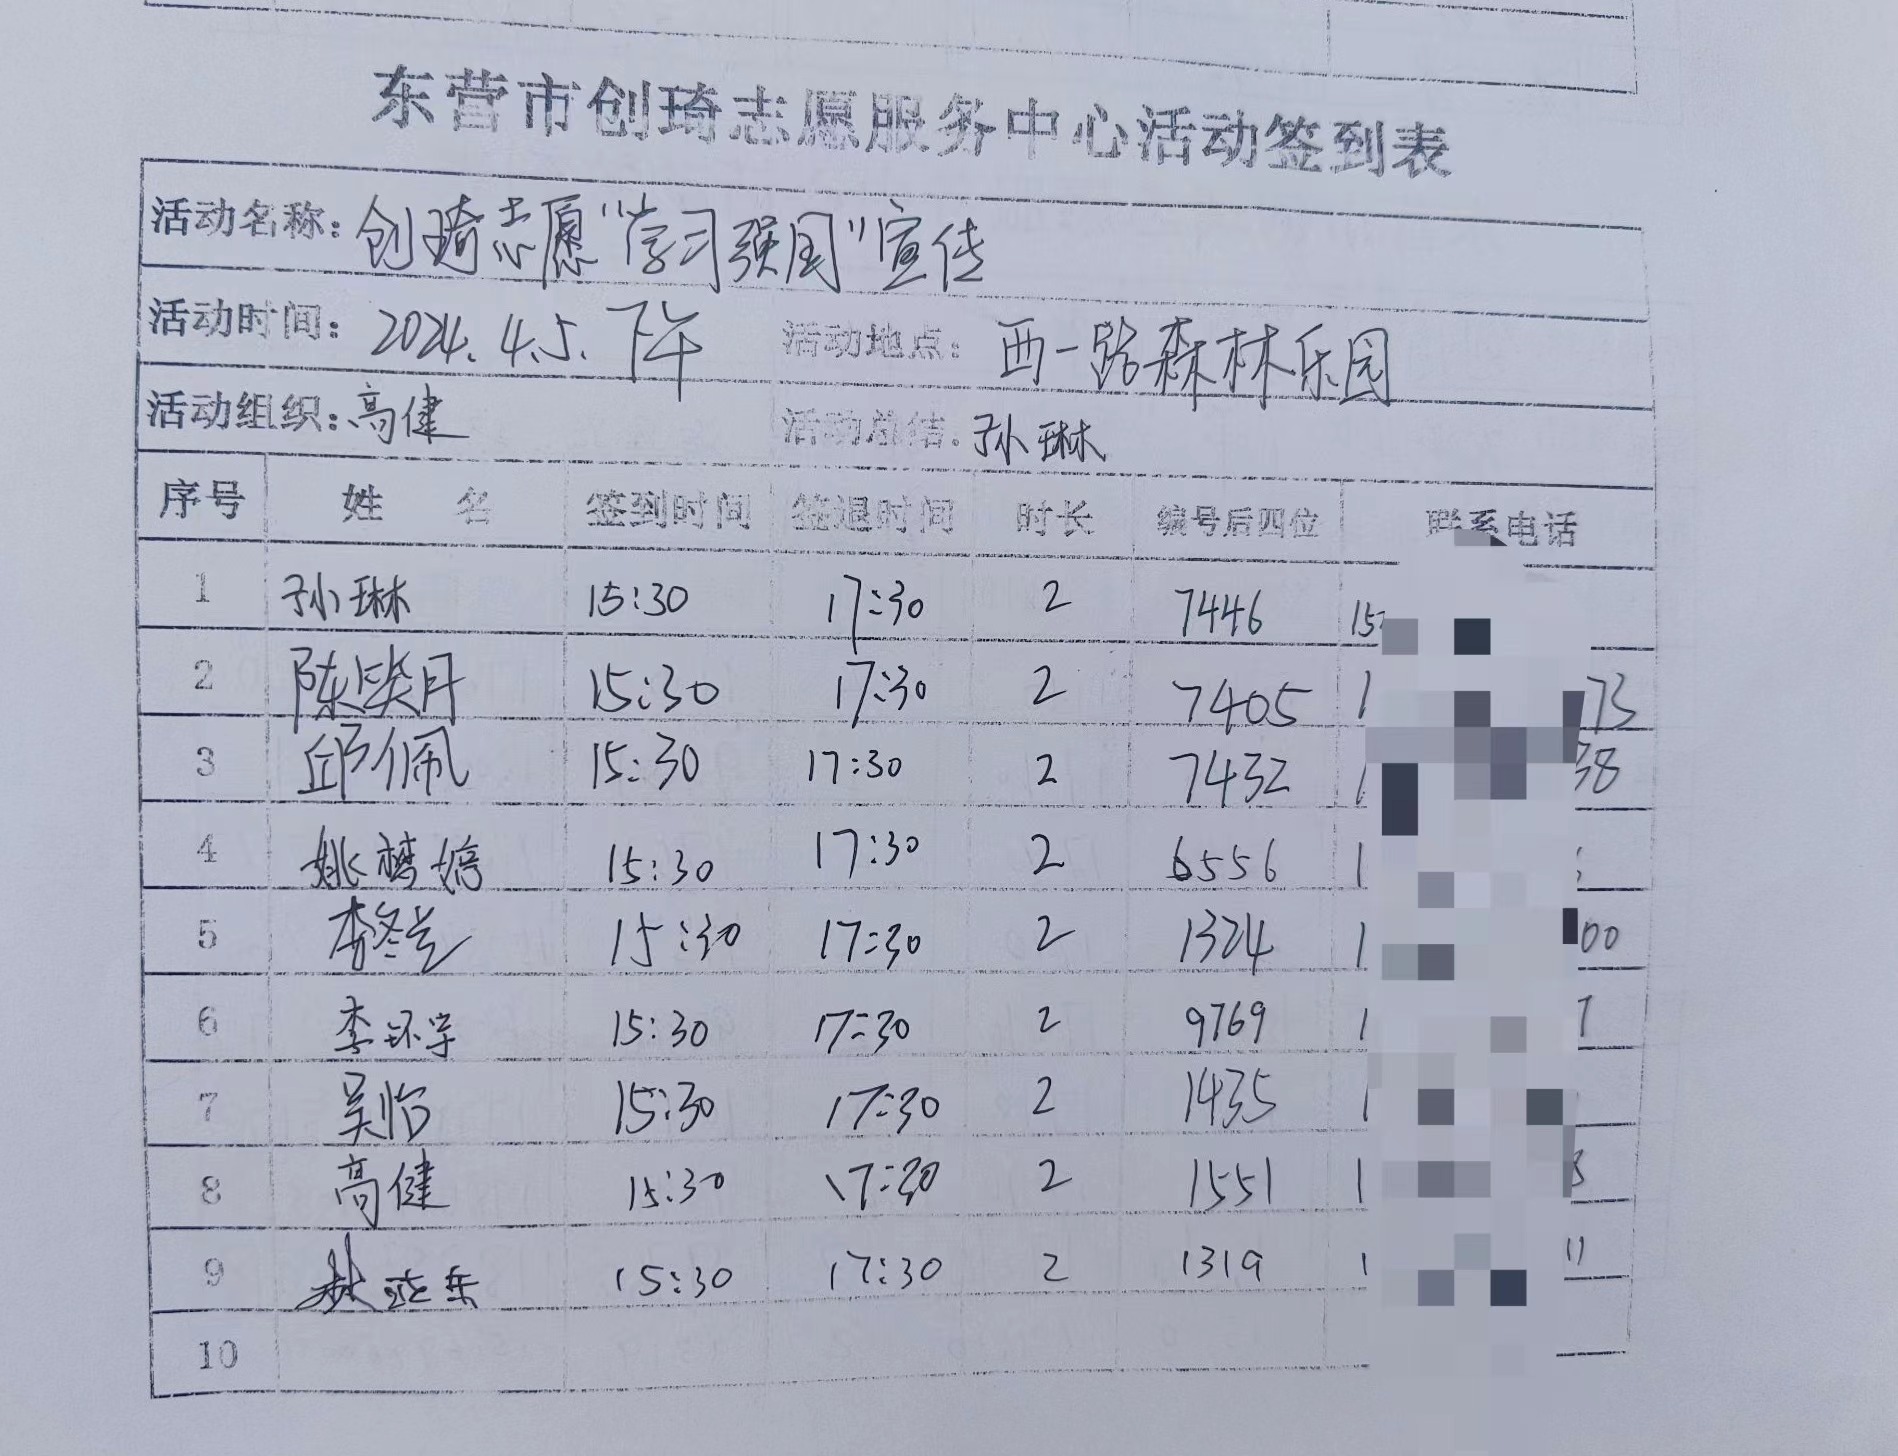 东营市创琦志愿服务中心活动签到表
活动名称：创琦志愿“学习强国”宣传
活动时间：2024.4.5.下午 活动地点：西一路森林乐园
活动组织：高健 活动总结：孙琳
序号 姓名 签到时间 签退时间 时长 编号后四位 联系电话
1 孙琳 15:30 17:30 2 7446 15
2 陈 月 15:30 17:30 2 7405 1 73
3 邱佩 15:30 17:30 2 7432 1 38
4 姚梦婷 15:30 17:30 2 6556 1
5 李冬兰 15:30 17:30 2 1324 1 00
6 李环宇 15:30 17:30 2 9769 1 7
7 吴怡 15:30 17:30 2 1435 1
8 高健 15:30 17:30 2 1551 1 8
9 东 15:30 17:30 2 1319 1 11
10